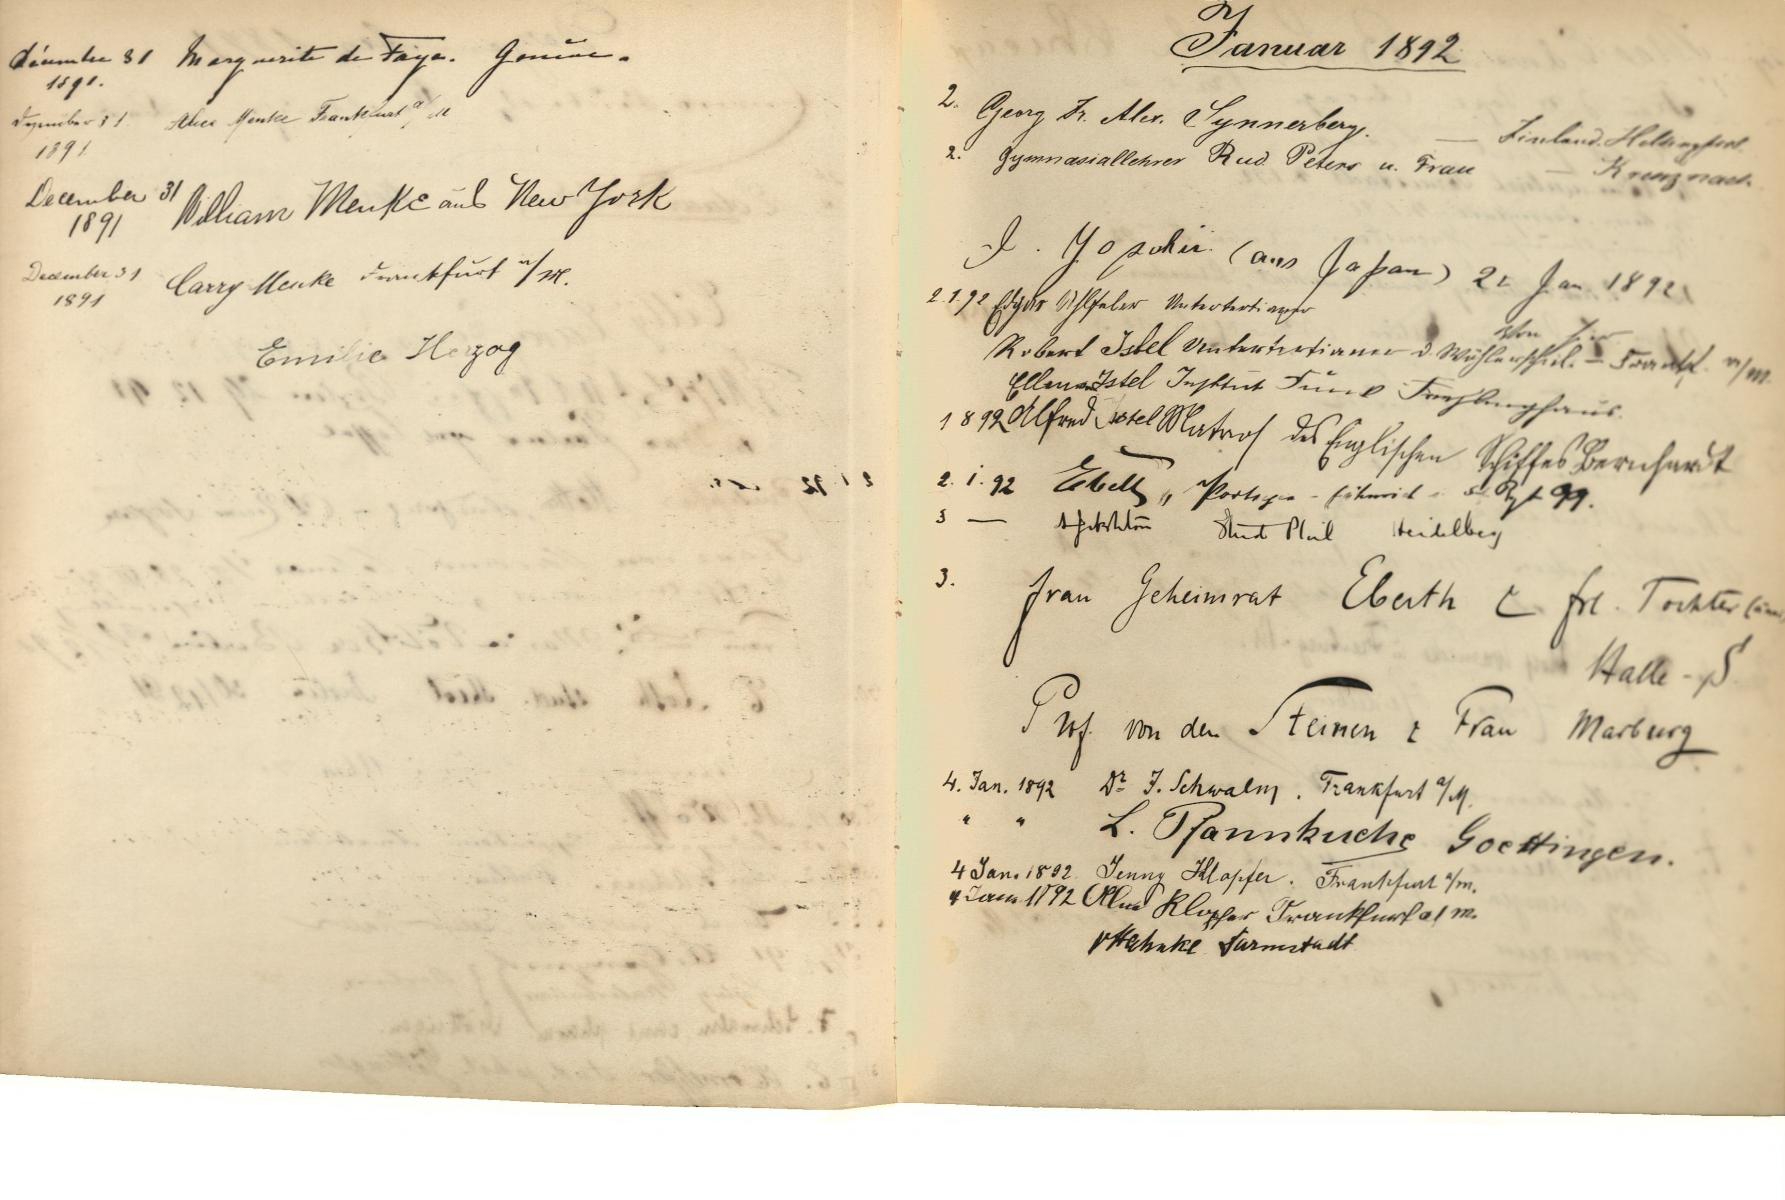 décembre 31 Marguerite de Faye. Genève.
1891.
Dezember 31 Alice Menke Frankfurt a/M
1891
December 31 William Menke aus New York
1891
December 31 Carry Menke Frankfurt a/M.
1891
Emilie Herzog
Januar 1892
2. Georg Fr. Alex. Synnerberg. — Finland. Helsingfors.
2. Gymnasiallehrer Rud Peters u. Frau — Kreuznach.
(aus Japan) 2 Jan 1892
2.1.92 Edgar Untertertianer
von hier
Robert Istel Untertertianer d. Wöhlerschul. — Frankf. a/m.
Ellen Istel Institut
1892 Alfred Istel Matros des Englischen Schiffes Bernhardt
2. 1. 92 99.
3 — Stud Phil Heidelberg
3. Frau Geheimrat Eberth & frl. Tochter
Halle - S
Prof. von den Steinen & Frau Marburg
4. Jan. 1892 Dr J. Schwalm. Frankfurt a/M.
" " L. Pfannkuche Goettingen.
4 Jan. 1892 Jenny Klopfer. Frankfurt a/m.
4 Jan 1892 Klopfer Frankfurt a/m.
Darmstadt